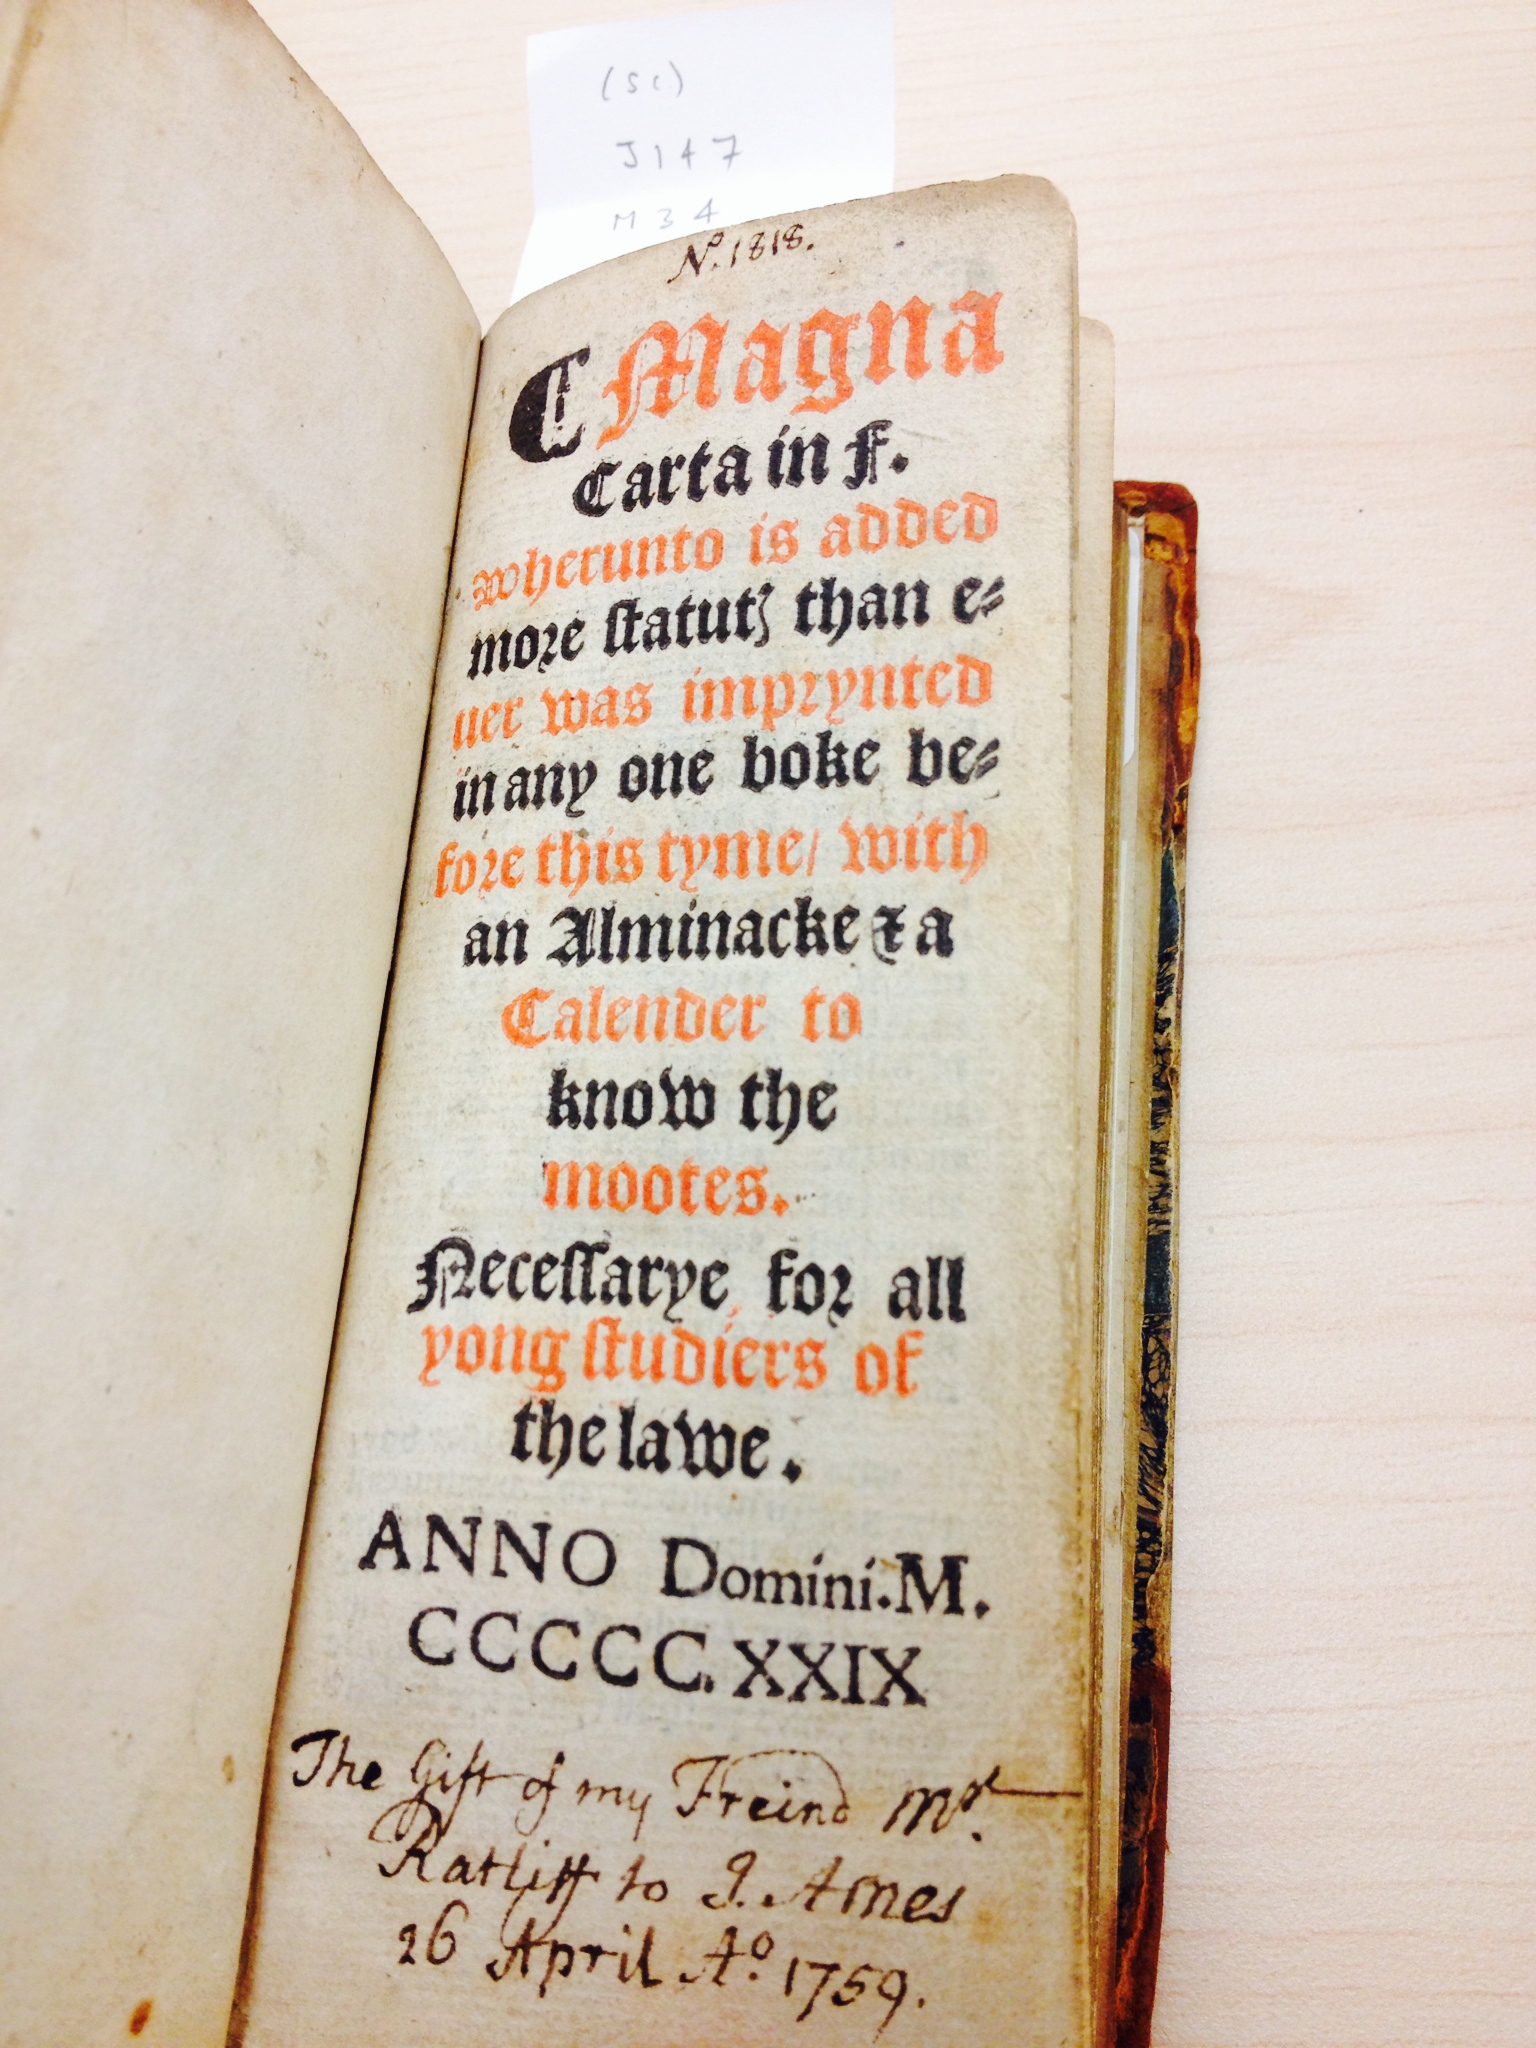 (SC)
J147
M34
No. 1818.
¶ Magna
Carta in F.
wherunto is added
more statutꝫ than e-
uer was imprynted
in any one boke be-
fore this tyme/ with
an Alminacke & a
Calender to
know the
mootes.
Necessarye for all
yong studiers of
the lawe.
ANNO Domini.M.
CCCCC.XXIX
The Gift of my Freind Mr.
Ratliff to J. Ames
26 April Ao. 1759.